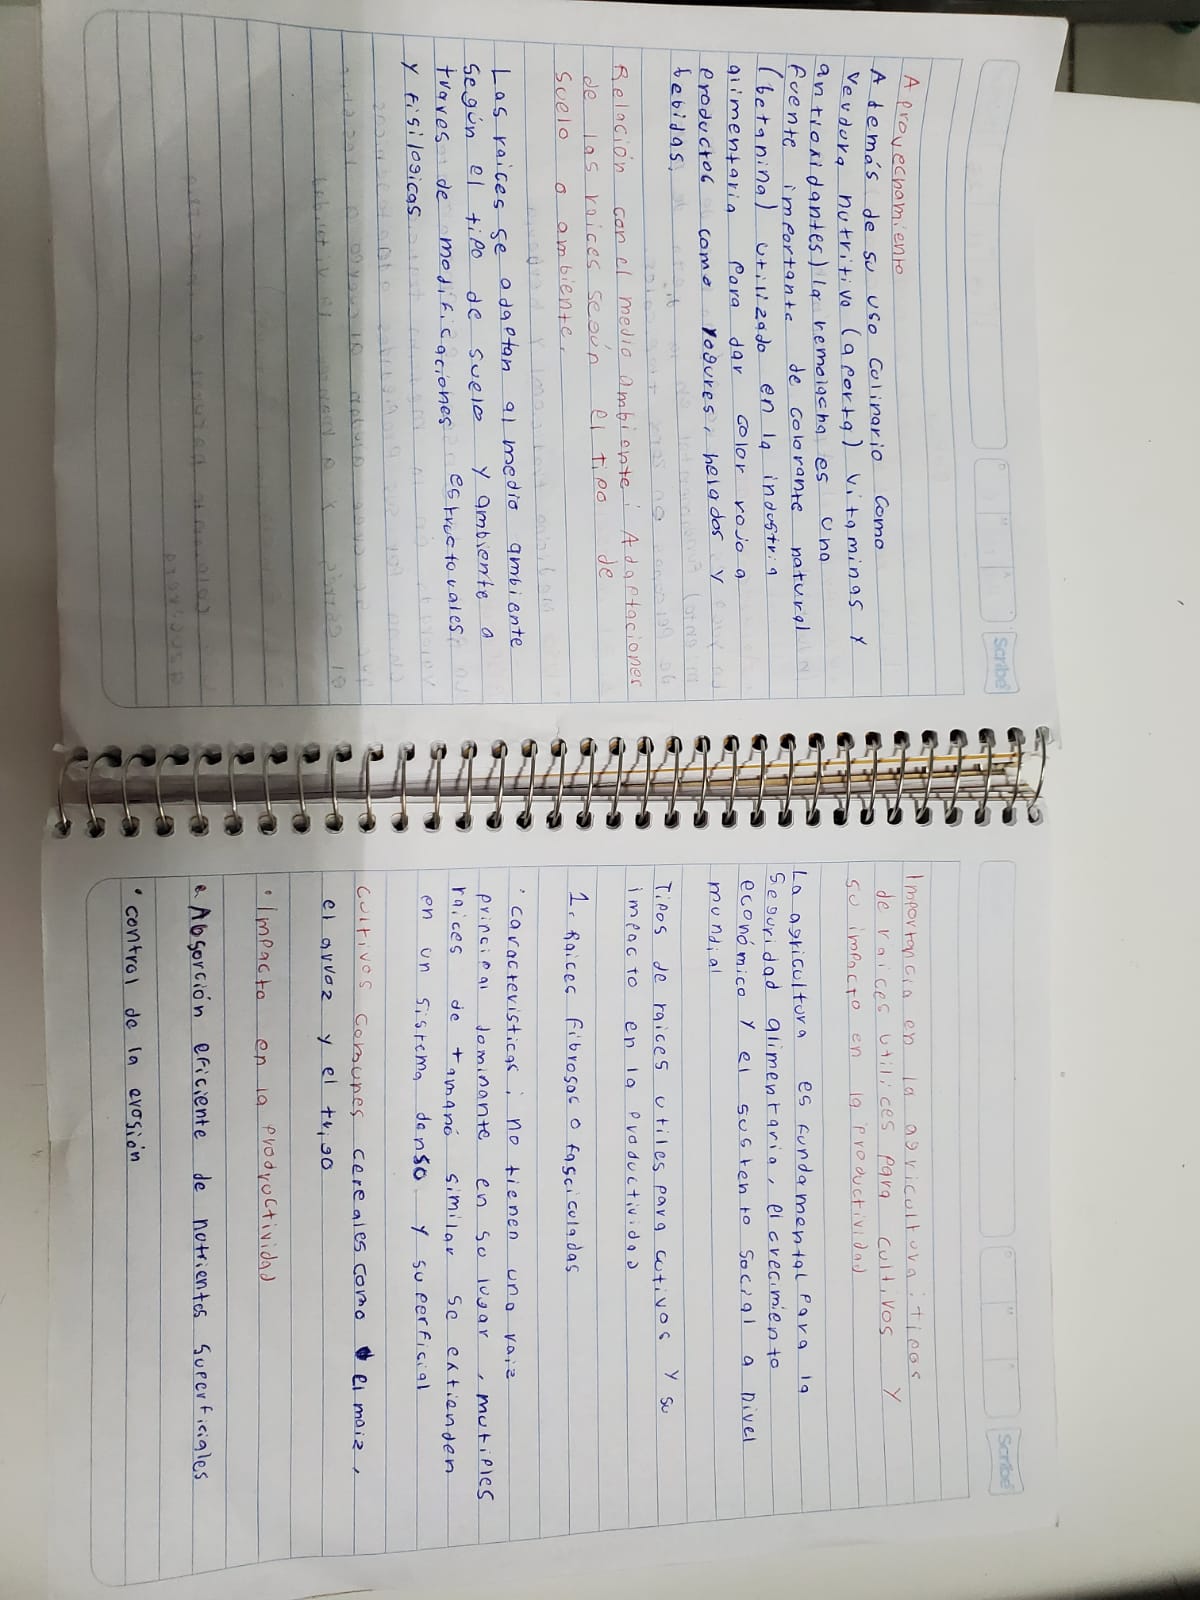 Scribe
Aprovechamiento
Además de su uso culinario como
verdura nutritiva (aporta) vitaminas y
antioxidantes) la remolacha es una
fuente importante de colorante natural
(betanina) utilizado en la industria
alimentaria para dar color rojo a
productos como yogures, helados y
bebidas.
Relación con el medio ambiente: Adaptaciones
de las raices según el tipo de
suelo o ambiente.
Las raices se adaptan al medio ambiente
según el tipo de suelo y ambiente a
traves de modificaciones estructurales
y fisilogicas
Scribe
Importancia en la agricultura: tipos
de raices utilices para cultivos y
su impacto en la productividad
La agricultura es fundamental para la
seguridad alimentaria, el crecimiento
económico y el sustento social a nivel
mundial
Tipos de raices utiles para cutivos y su
impacto en la productividad
1. Raices fibrosas o fasciculadas
• caracteristicas: no tienen una raiz
principal dominante en su lugar, mutiples
raices de tamano similar se extienden
en un sistema denso y superficial
cultivos comunes cereales como el maiz,
el arroz y el trigo
• Impacto en la productividad
a. Absorción eficiente de nutrientes superficiales
• control de la erosión